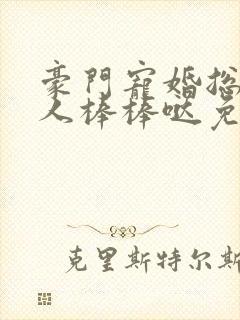 豪門寵婚揔
人棒棒哒免
克里斯特尔斯